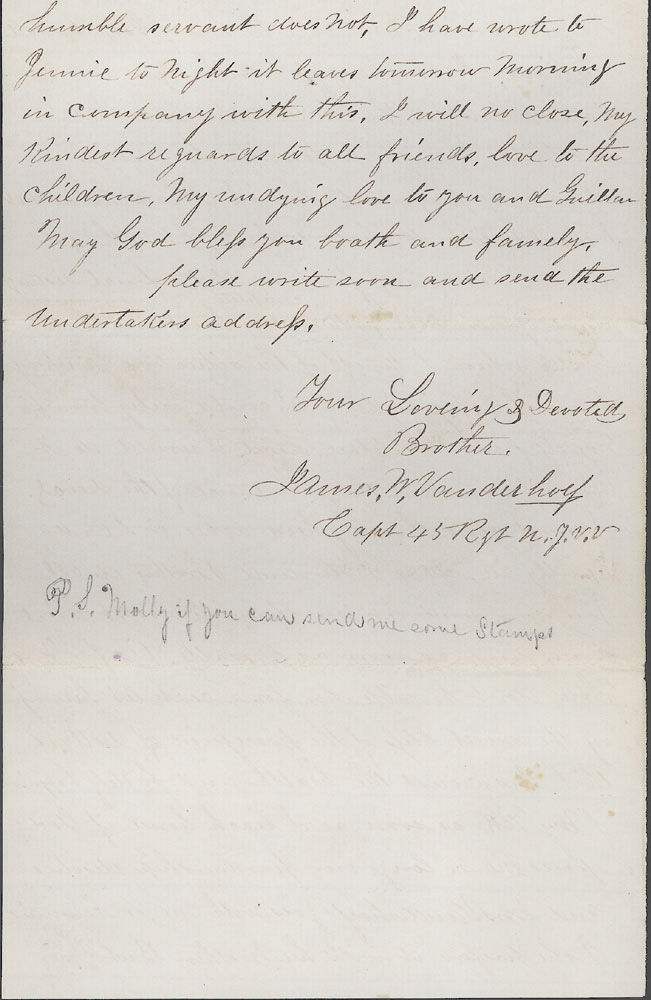 humble servant does Not, I have wrote to
Jennie to Night it leaves tomorrow Morning
in company with this, I will no close, My
Kindest reguards to all friends, love to the
Children, My undying love to you and
May God bless you boath and famely,
please write soon and send the
Undertakers address.
Your Loveing & Devoted
Brother.
James, W, Vanderhoef
Capt 45 Rgt N. J. V. V
P. S. Molly if you can send me some Stamps